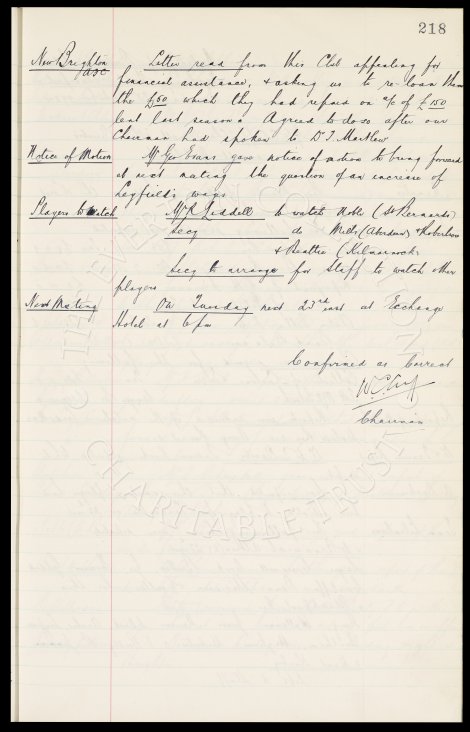 218
New Brighton Letter read from this Club appealing for
financial assistance, & asking us to re-loan them
the £50 which they had repaid on a/c of £150
lent last season Agreed to do so after our
Chairman had spoken to Dr J. Martlew
Notice of Motion Mr Geo Evans gave notice of motion to bring forward
at next meeting the question of an increase of
Leyfield's wages
Players to watch Mr R Liddell to watch Noble (St Bernards)
Secy do Mills (Aberdeen) & Robertson
& Beattie (Kilmarnock)
Secy to arrange for Staff to watch other
players
Next Meeting On Tuesday next 23rd inst at Exchange
Hotel at 6pm
Confirmed as Correct
W.C. Cuff
Chairman
THE EVERTON COLLECTION
CHARITABLE TRUST